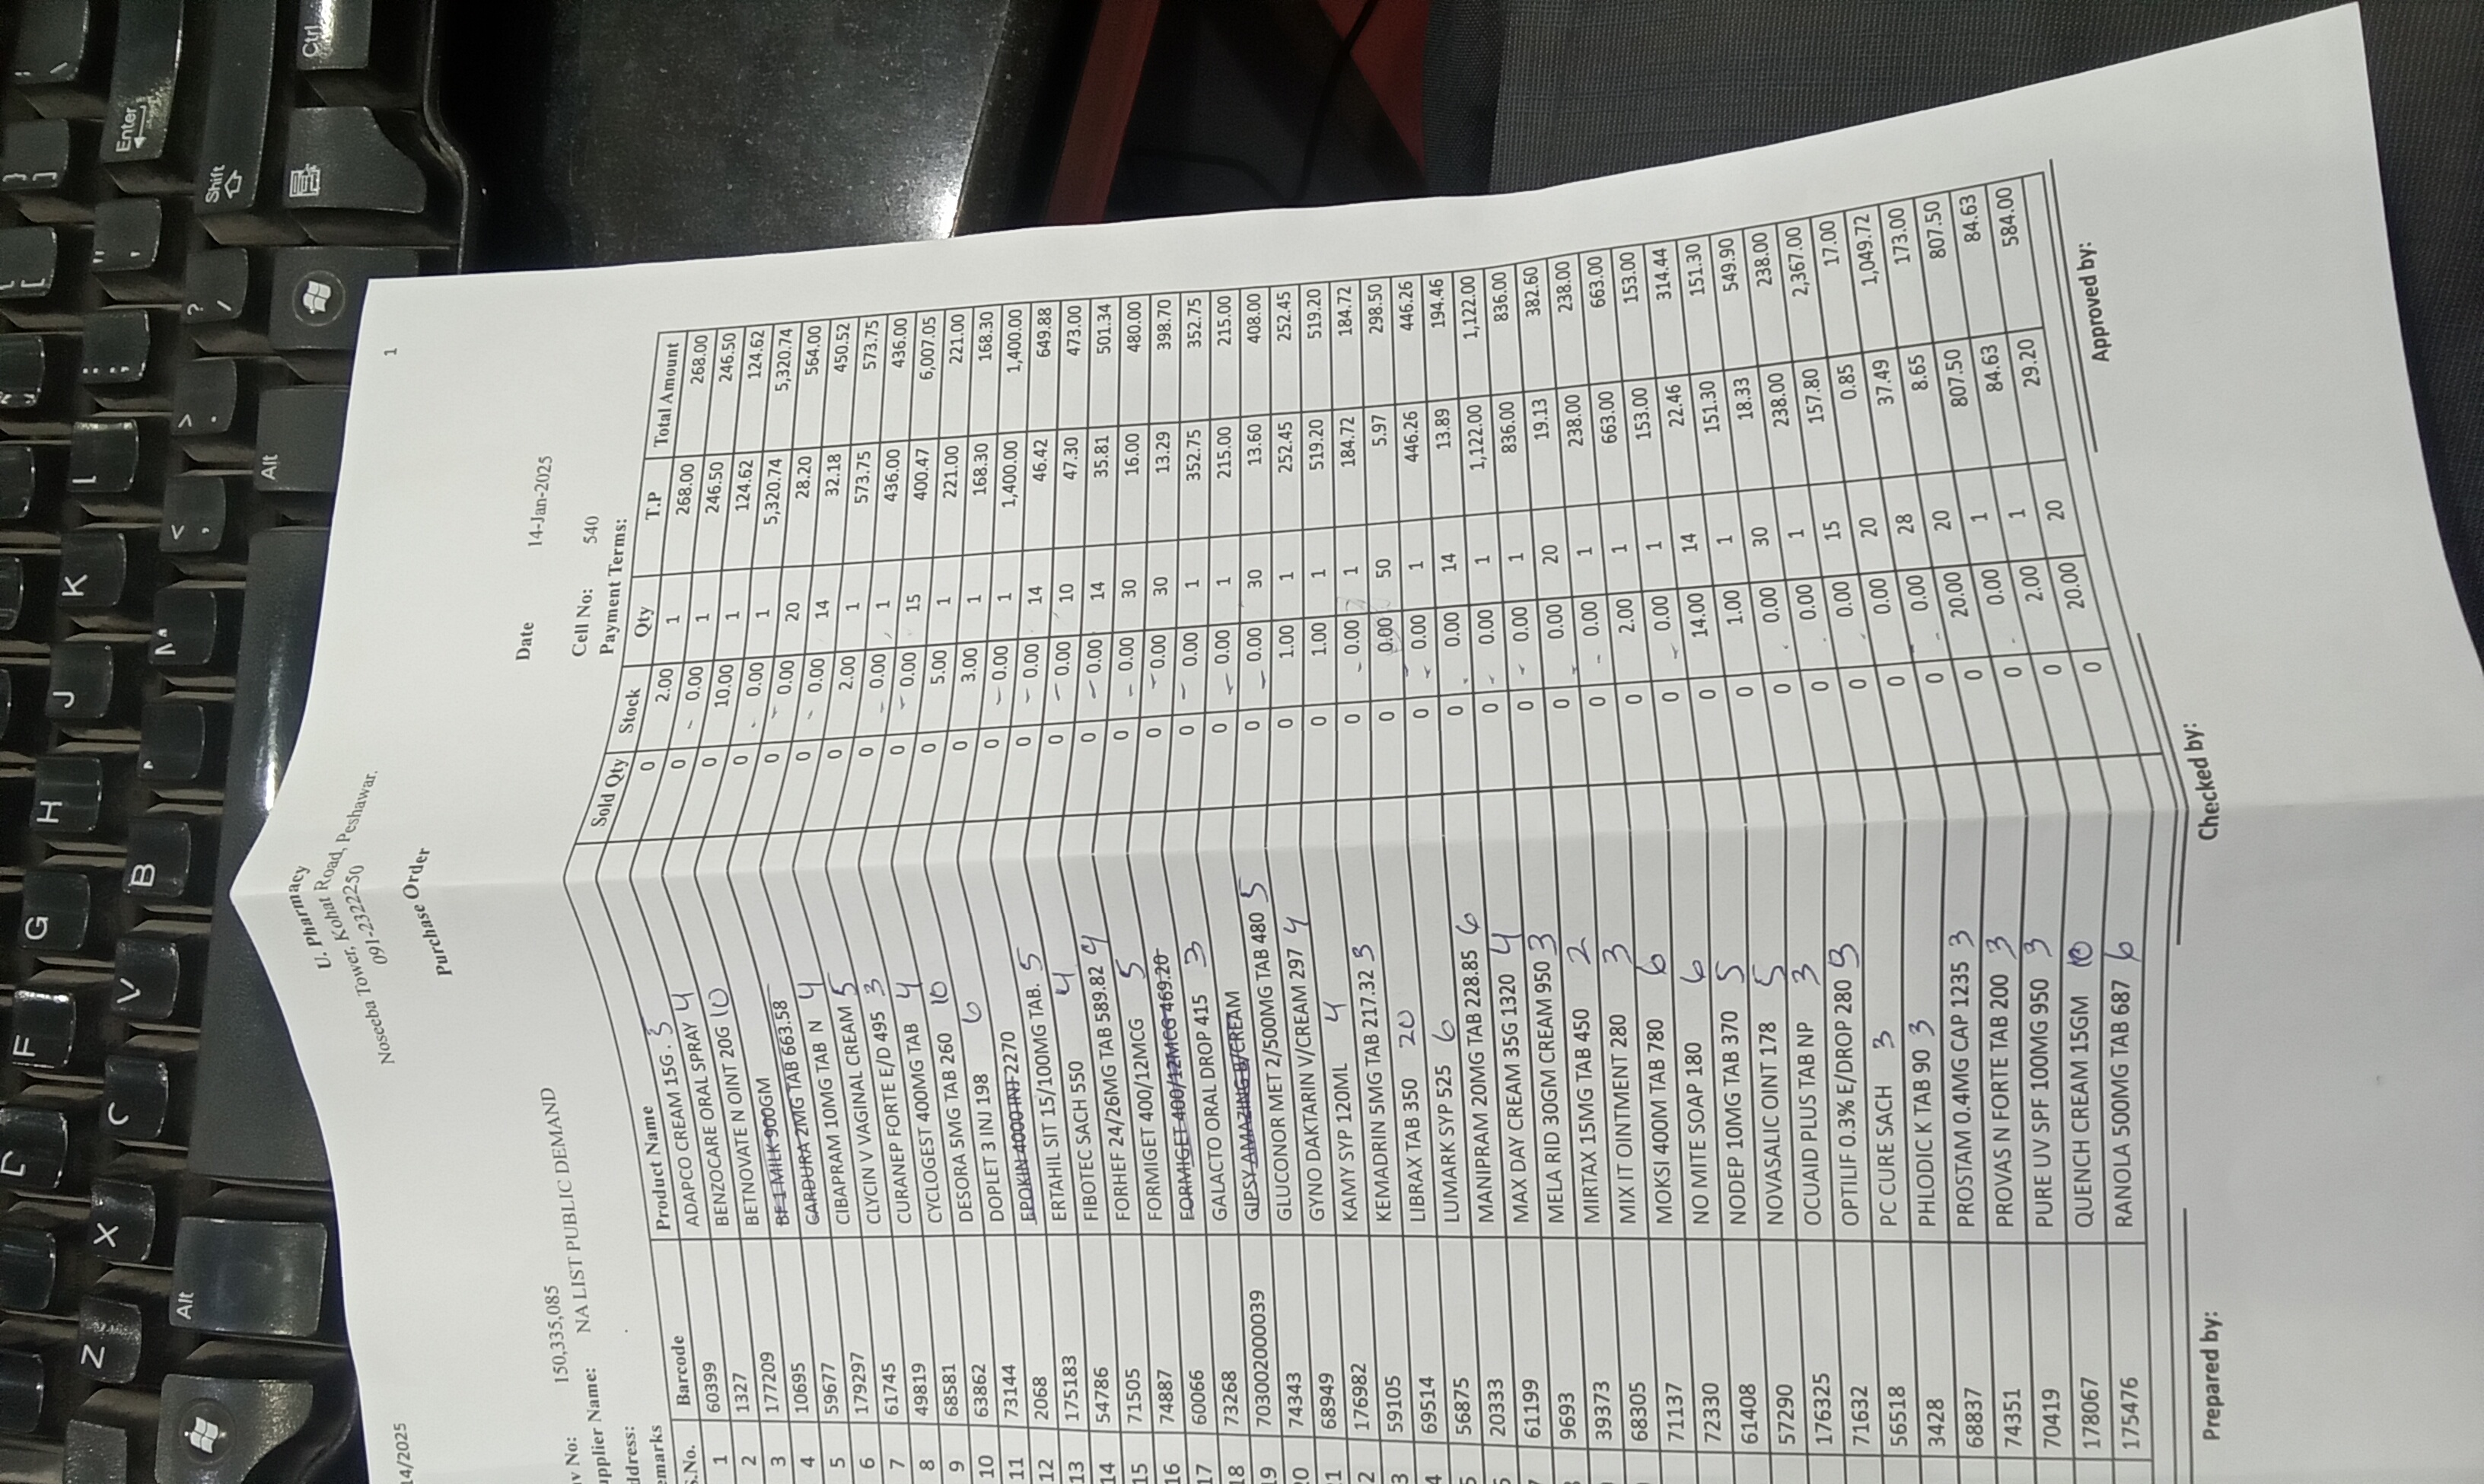 14/2025
U. Pharmacy 1
Noseeba Tower, Kohat Road, Peshawar.
091-2322250
Purchase Order
v No: 150,335,085 Date 14-Jan-2025
upplier Name: NA LIST PUBLIC DEMAND Cell No: 540
ddress: . Payment Terms:
emarks
S.No. Barcode Product Name Sold Qty Stock Qty T.P Total Amount
1 60399 ADAPCO CREAM 15G . 3 0 2.00 1 268.00 268.00
2 1327 BENZOCARE ORAL SPRAY 4 0 0.00 1 246.50 246.50
3 177209 BETNOVATE N OINT 20G 10 0 10.00 1 124.62 124.62
4 10695 BF-1 MILK 900GM 0 0.00 1 5,320.74 5,320.74
5 59677 CARDURA 2MG TAB 663.58 0 0.00 20 28.20 564.00
6 179297 CIBAPRAM 10MG TAB N 4 0 0.00 14 32.18 450.52
7 61745 CLYCIN V VAGINAL CREAM 5 0 2.00 1 573.75 573.75
8 49819 CURANEP FORTE E/D 495 3 0 0.00 1 436.00 436.00
9 68581 CYCLOGEST 400MG TAB 4 0 0.00 15 400.47 6,007.05
10 63862 DESORA 5MG TAB 260 10 0 5.00 1 221.00 221.00
11 73144 DOPLET 3 INJ 198 6 0 3.00 1 168.30 168.30
12 2068 EPOKIN 4000 INJ 2270 0 0.00 1 1,400.00 1,400.00
13 175183 ERTAHIL SIT 15/100MG TAB. 5 0 0.00 14 46.42 649.88
14 54786 FIBOTEC SACH 550 4 0 0.00 10 47.30 473.00
15 71505 FORHEF 24/26MG TAB 589.82 4 0 0.00 14 35.81 501.34
16 74887 FORMIGET 400/12MCG 5 0 0.00 30 16.00 480.00
17 60066 FORMIGET 400/12MCG 469.20 0 0.00 30 13.29 398.70
18 73268 GALACTO ORAL DROP 415 3 0 0.00 1 352.75 352.75
19 703002000039 GLIPSY AMAZING B/CREAM 0 0.00 1 215.00 215.00
0 74343 GLUCONOR MET 2/500MG TAB 480 5 0 0.00 30 13.60 408.00
1 68949 GYNO DAKTARIN V/CREAM 297 4 0 1.00 1 252.45 252.45
2 176982 KAMY SYP 120ML 4 0 1.00 1 519.20 519.20
3 59105 KEMADRIN 5MG TAB 217.32 3 0 0.00 1 184.72 184.72
4 69514 LIBRAX TAB 350 20 0 0.00 50 5.97 298.50
56875 LUMARK SYP 525 6 0 0.00 1 446.26 446.26
20333 MANIPRAM 20MG TAB 228.85 6 0 0.00 14 13.89 194.46
61199 MAX DAY CREAM 35G 1320 4 0 0.00 1 1,122.00 1,122.00
9693 MELA RID 30GM CREAM 950 3 0 0.00 1 836.00 836.00
39373 MIRTAX 15MG TAB 450 2 0 0.00 20 19.13 382.60
68305 MIX IT OINTMENT 280 3 0 0.00 1 238.00 238.00
71137 MOKSI 400M TAB 780 6 0 2.00 1 663.00 663.00
72330 NO MITE SOAP 180 6 0 0.00 1 153.00 153.00
61408 NODEP 10MG TAB 370 5 0 14.00 14 22.46 314.44
57290 NOVASALIC OINT 178 5 0 1.00 1 151.30 151.30
176325 OCUAID PLUS TAB NP 3 0 0.00 30 18.33 549.90
71632 OPTILIF 0.3% E/DROP 280 3 0 0.00 1 238.00 238.00
56518 PC CURE SACH 3 0 0.00 15 157.80 2,367.00
3428 PHLODIC K TAB 90 3 0 0.00 20 0.85 17.00
68837 PROSTAM 0.4MG CAP 1235 3 0 0.00 28 37.49 1,049.72
74351 PROVAS N FORTE TAB 200 3 0 20.00 20 8.65 173.00
70419 PURE UV SPF 100MG 950 3 0 0.00 1 807.50 807.50
178067 QUENCH CREAM 15GM 10 0 2.00 1 84.63 84.63
175476 RANOLA 500MG TAB 687 6 0 20.00 20 29.20 584.00
Prepared by: Checked by: Approved by: